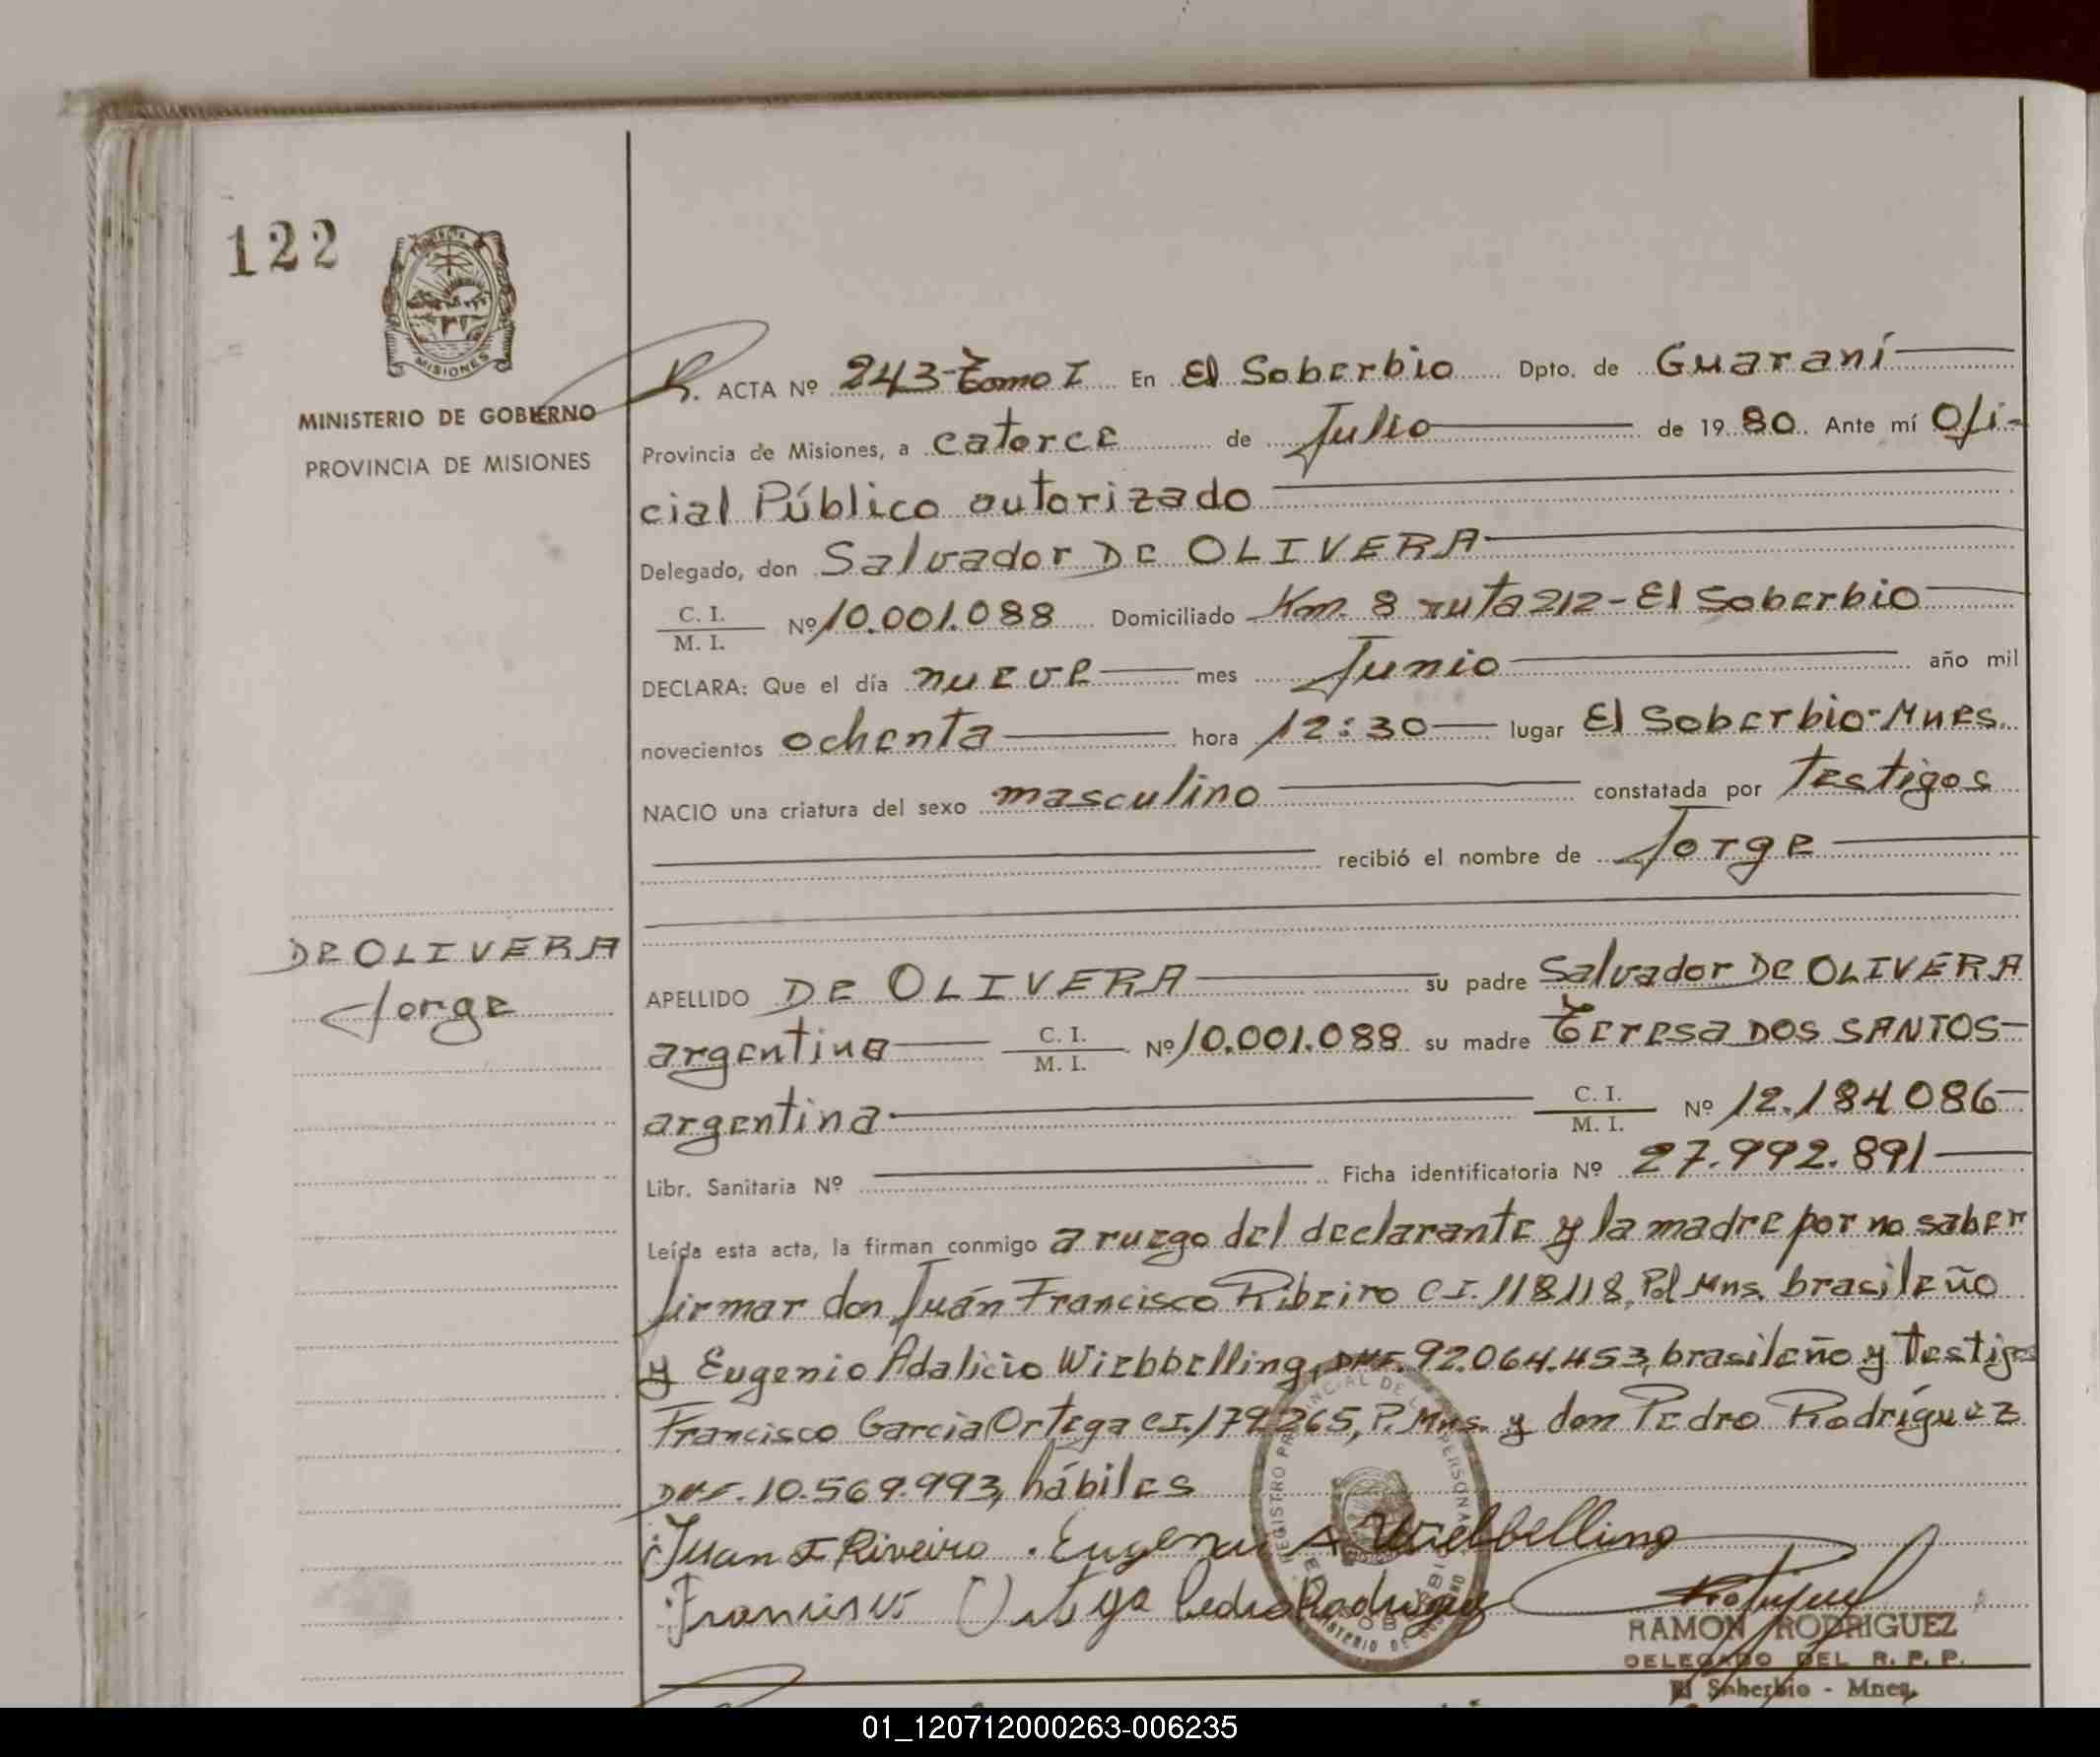 122
MISIONES
MINISTERIO DE GOBIERNO
PROVINCIA DE MISIONES
DE OLIVERA
Jorge
R. ACTA Nº 243-Tomo I En El Soberbio Dpto. de Guaraní
Provincia de Misiones, a catorce de Julio de 1980. Ante mí Ofi-
cial Público autorizado
Delegado, don Salvador De OLIVERA
C. I.
M. I. Nº 10.001.088 Domiciliado Km. 8 ruta 212 - El Soberbio
DECLARA: Que el día nueve mes Junio año mil
novecientos ochenta hora 12:30 lugar El Soberbio-Mnes.
NACIO una criatura del sexo masculino constatada por testigos
recibió el nombre de Jorge
APELLIDO DE OLIVERA su padre Salvador De OLIVERA
argentino C. I. M. I. Nº 10.001.088 su madre Teresa DOS SANTOS
argentina C. I. M. I. Nº 12.184.086
Libr. Sanitaria Nº Ficha identificatoria Nº 27.992.891
Leída esta acta, la firman conmigo a ruego del declarante y la madre por no saber
firmar don Juán Francisco Ribeiro C.I. 118118, Pol Mns. brasileño
y Eugenio Adalicio Wiebbelling, 92.064.453, brasileño y testigos
Francisco Garcia Ortega C.I. 179265, P. Mns. y don Pedro Rodríguez
10.569.993, hábiles
Juan F Riveiro. Eugenio A Wiebbelling
Francisco Ortega Pedro Rodriguez
RAMON RODRIGUEZ
DELEGADO DEL R. P. P.
El Soberbio - Mnes.
01_120712000263-006235